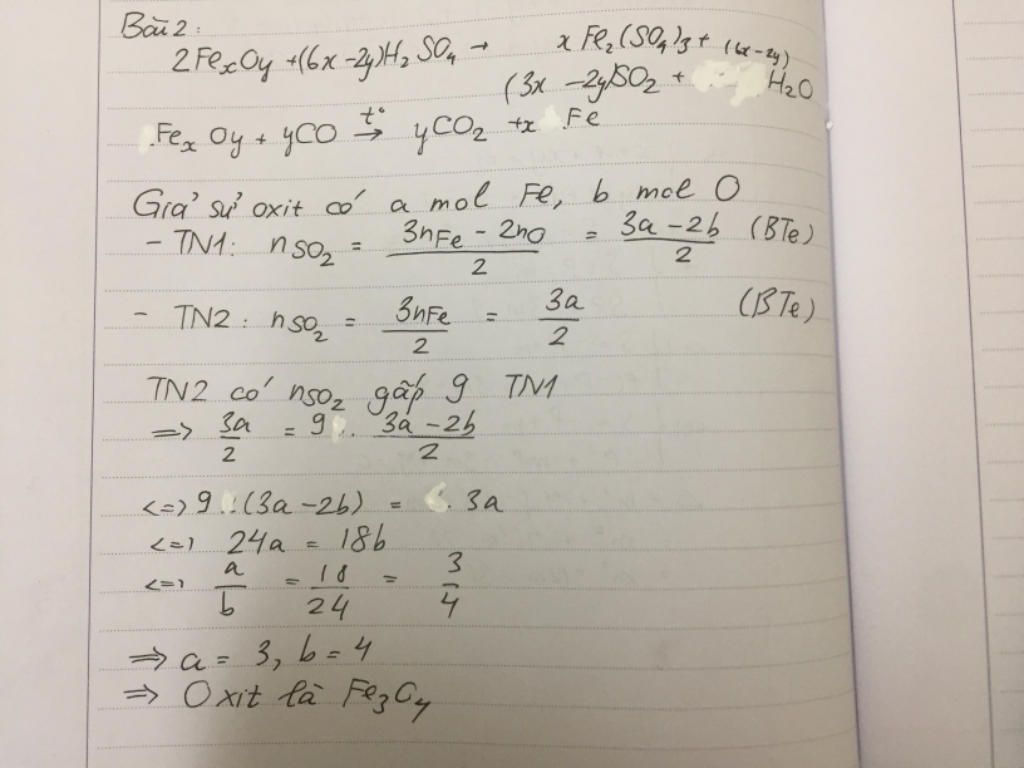 Bài 2:
2FexOy +(6x -2y)H2SO4 → x Fe2(SO4)3 + (6x-2y)
(3x -2y)SO2 + H2O
FexOy + yCO t° → yCO2 +x Fe
Giả sử oxit có a mol Fe, b mol O
- TN1: nSO2 = (3nFe - 2nO)/2 = (3a - 2b)/2 (BTe)
- TN2: nSO2 = 3nFe/2 = 3a/2 (BTe)
TN2 có nSO2 gấp 9 TN1
=> 3a/2 = 9 . (3a - 2b)/2
<=> 9 . (3a - 2b) = . 3a
<=> 24a = 18b
<=> a/b = 18/24 = 3/4
=> a = 3, b = 4
=> Oxit là Fe3O4